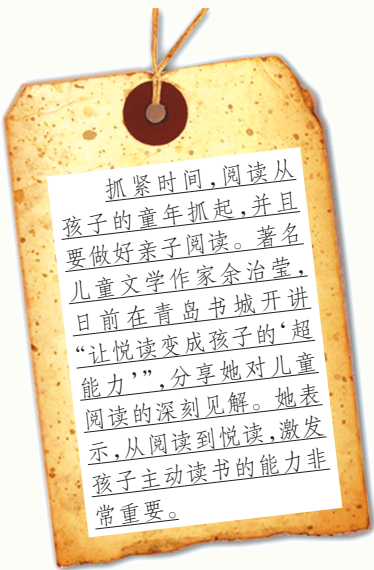 抓紧时间,阅读从
孩子的童年抓起,并且
要做好亲子阅读。著名
儿童文学作家余治莹,
日前在青岛书城开讲
“让悦读变成孩子的‘超
能力’”,分享她对儿童
阅读的深刻见解。她表
示,从阅读到悦读,激发
孩子主动读书的能力非
常重要。